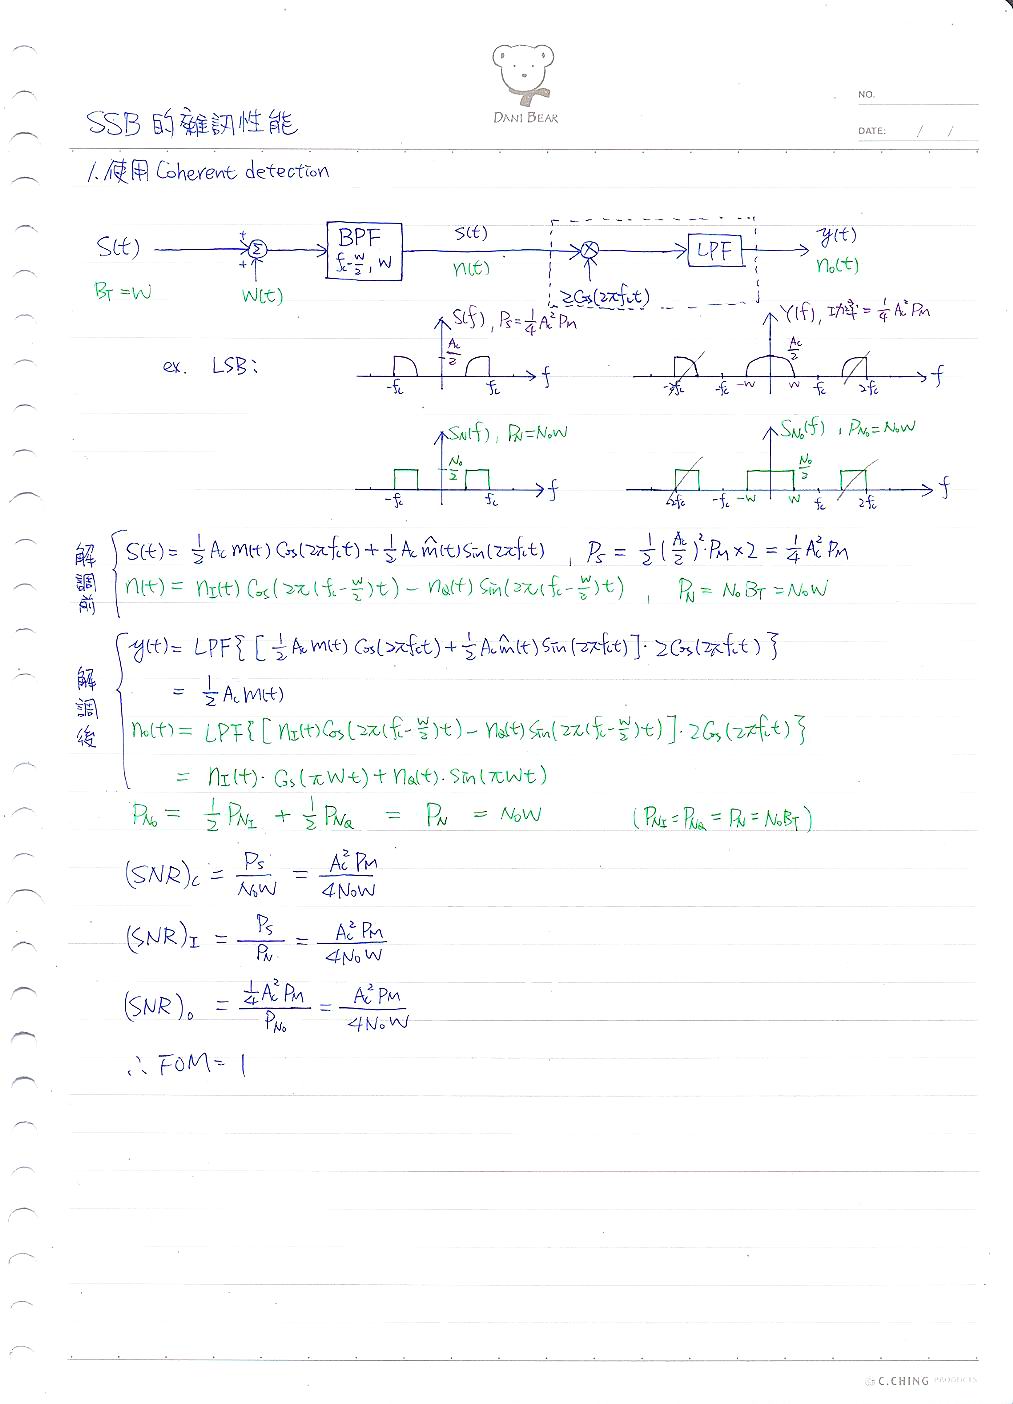 DANI BEAR
NO.
DATE: / /
SSB 的雜訊性能
1. 使用 Coherent detection
S(t) + Σ BPF fc-W/2, W s(t) × LPF y(t)
BT = W + W(t) n(t) 2Cos(2πfct) no(t)
ex. LSB:
S(f), Ps = 1/4 Ac² PM
Ac/2
-fc fc f
Y(f), 功率 = 1/4 Ac² PM
Ac/2
-2fc -fc -W W fc 2fc f
SN(f), PN = NoW
No/2
-fc fc f
SNo(f), PNo = NoW
No/2
-2fc -fc -W W fc 2fc f
解調前
S(t) = 1/2 Ac m(t) Cos(2πfct) + 1/2 Ac m̂(t) Sin(2πfct) , Ps = 1/2 (Ac/2)²·PM × 2 = 1/4 Ac² PM
n(t) = nI(t) Cos(2π(fc-W/2)t) - nQ(t) Sin(2π(fc-W/2)t) , PN = NoBT = NoW
解調後
y(t) = LPF{ [ 1/2 Ac m(t) Cos(2πfct) + 1/2 Ac m̂(t) Sin(2πfct) ]· 2Cos(2πfct) }
= 1/2 Ac m(t)
no(t) = LPF{ [ nI(t) Cos(2π(fc-W/2)t) - nQ(t) Sin(2π(fc-W/2)t) ]· 2Cos(2πfct) }
= nI(t)· Cos(πWt) + nQ(t)· Sin(πWt)
PNo = 1/2 PNI + 1/2 PNQ = PN = NoW (PNI = PNQ = PN = NoBT)
(SNR)c = Ps/NoW = Ac² PM/4NoW
(SNR)I = Ps/PN = Ac² PM/4NoW
(SNR)o = 1/4 Ac² PM/PNo = Ac² PM/4NoW
∴ FOM = 1
C.CHING PRODUCTS